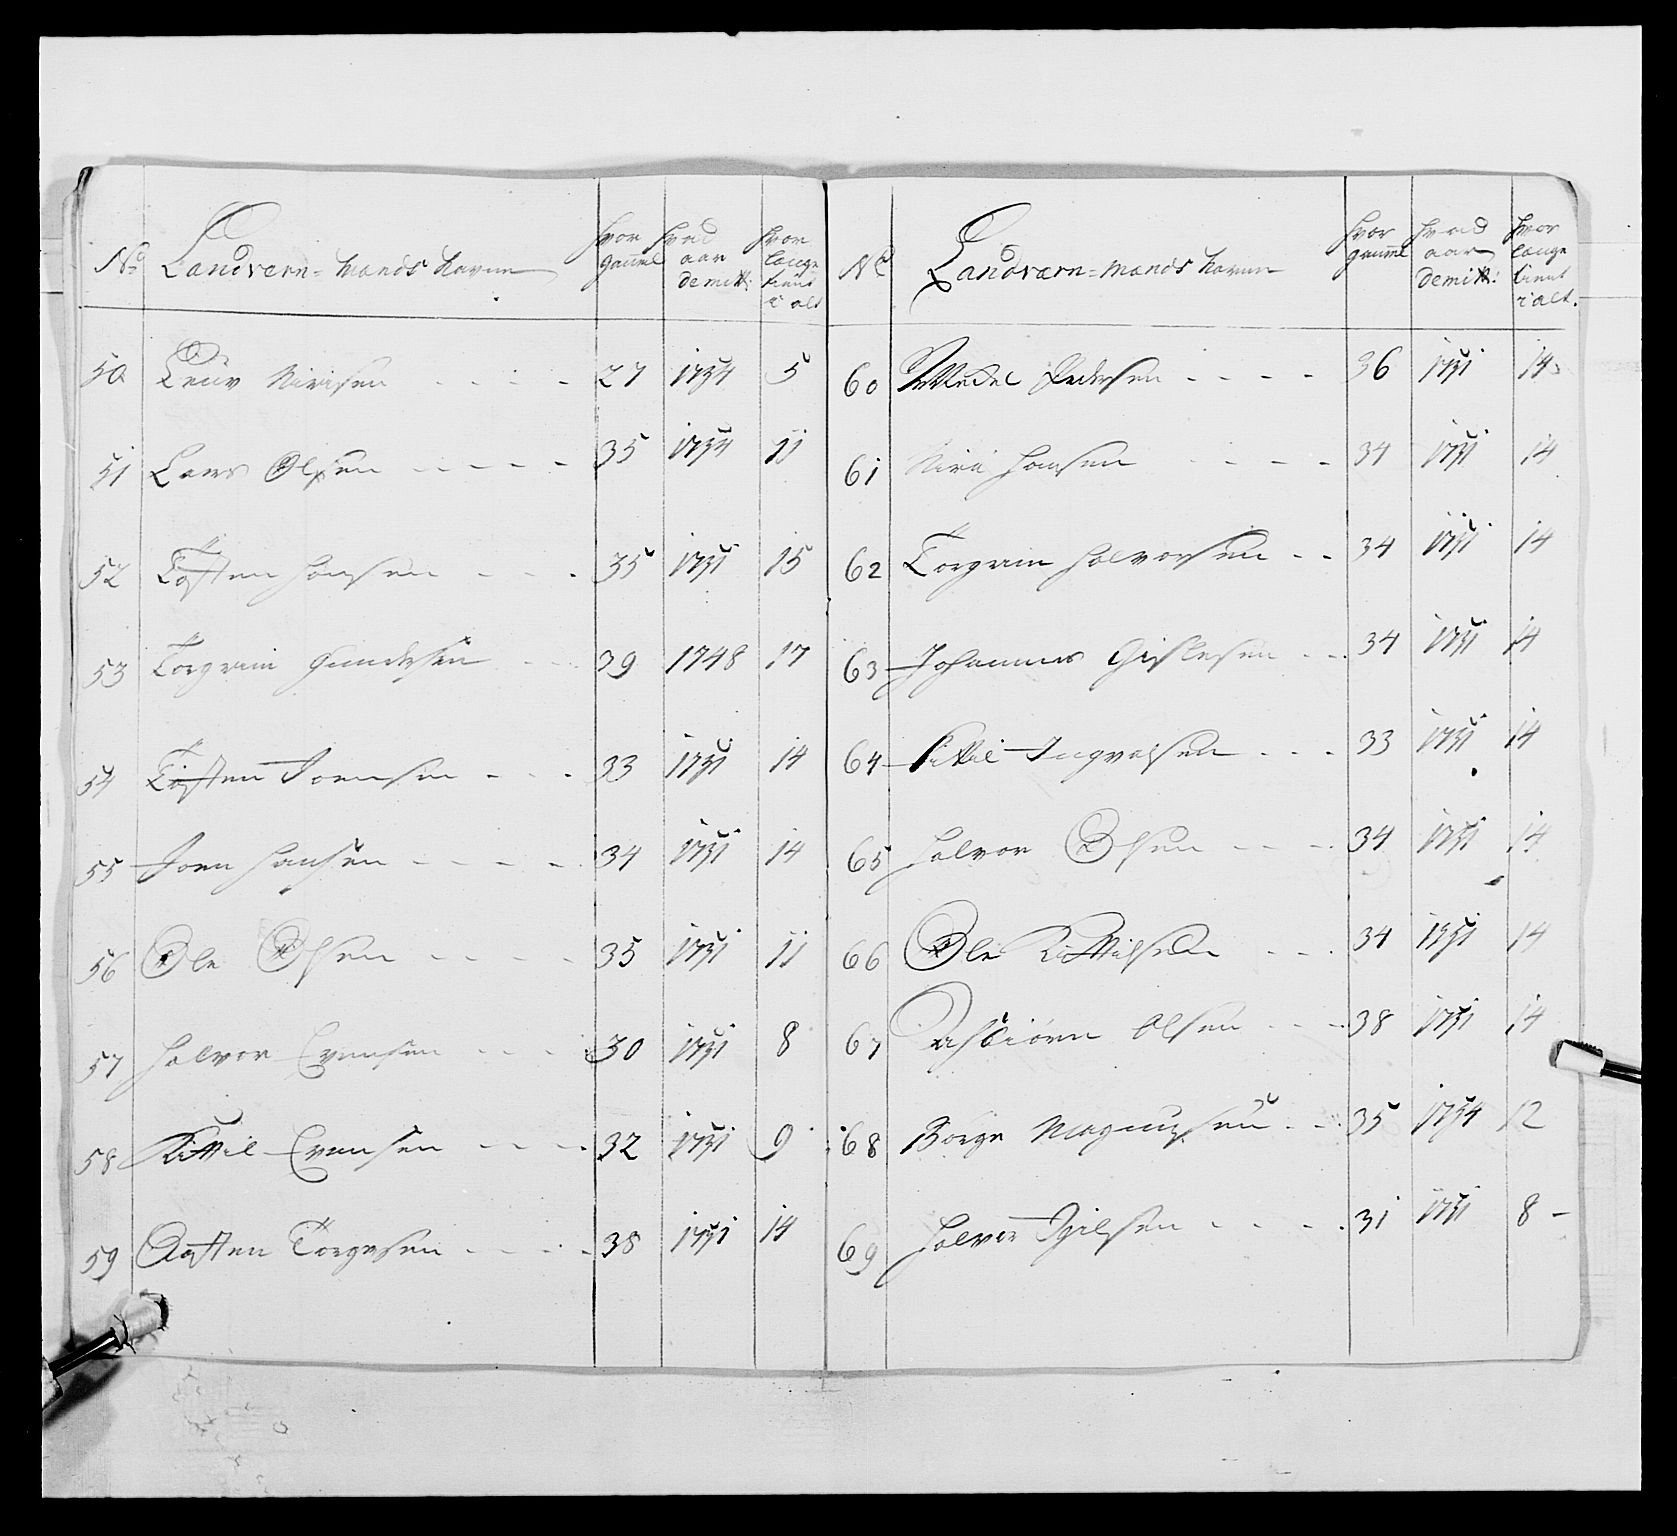 No Landværn=Mands Navne hvor gammel hvad aar demitt: hvor længe tient i alt
50 Leuv Nirisen 27 1754 5
51 Lars Olsen 35 1754 11
52 Tosten Hansen 35 1751 15
53 Torgrim Gundersen 39 1748 17
54 Tosten Joensen 33 1751 14
55 Joen Hansen 34 1751 14
56 Ole Olsen 35 1751 11
57 Halvor Evensen 30 1751 8
58 Kittil Evensen 32 1751 9
59 Aasten Torgesen 38 1751 14
No Landværn=Mands Navne hvor gammel hvad aar demitt: hvor længe tient i alt.
60 Pedersen 36 1751 14
61 Niri Hansen 34 1751 14
62 Torgrim Halvorsen 34 1751 14
63 Johannes Gislesen 34 1751 14
64 Kittil Ingvalsen 33 1751 14
65 Halvor Olsen 34 1751 14
66 Ole Kittilsen 34 1751 14
67 Asbiørn Olsen 38 1751 14
68 Børge Magnussen 35 1754 12
69 Halvor Gilsen 31 1751 8